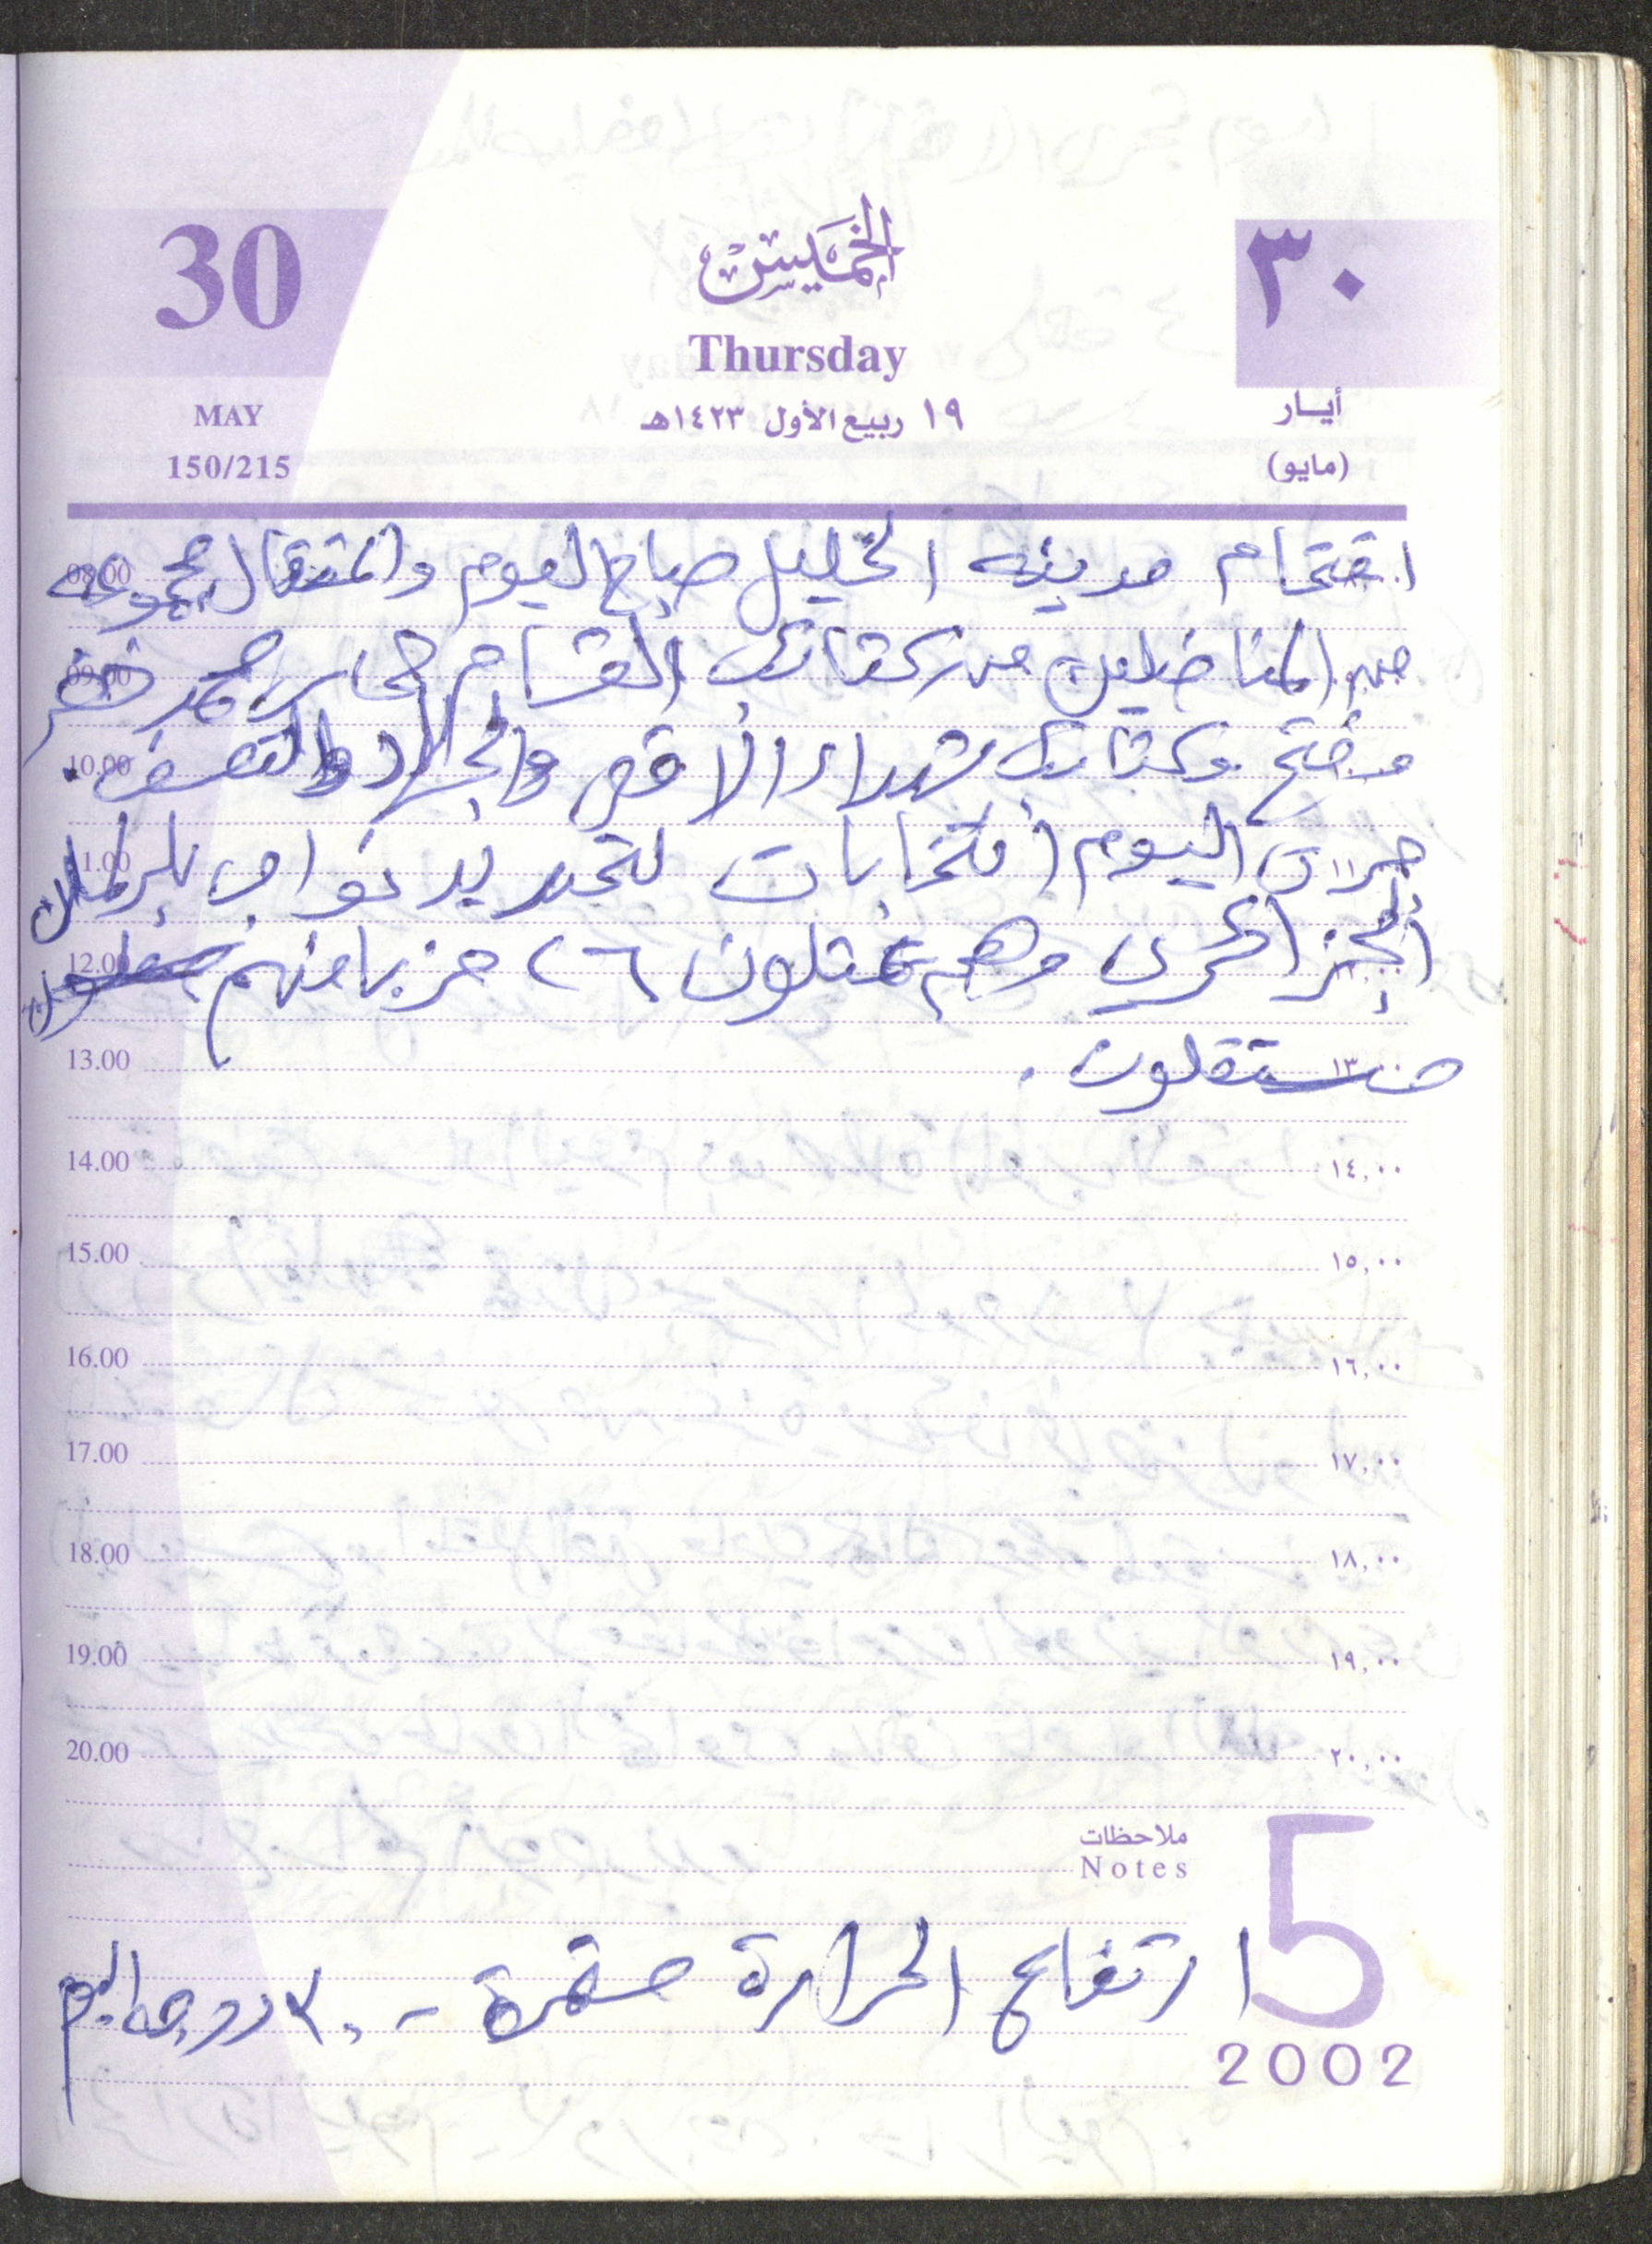 30
الخميس
٣٠
Thursday
MAY
١٩ ربيع الأول ١٤٢٣هـ
أيـار
150/215
(مايو)
اقتحام مدينه الخليل صباح اليوم واعتقال مجموعه
08.00
من المناضلين من كتائب القسام حماس
09.00
وفتح وكتائب شهداء الاقصى والجهاد
10.00
جرت اليوم انتخابات لتحديد نواب البرلمان
11.00
الجزائري وهم يمثلون ٢٦ حزبا منهم
12.00
مستقلون .
13.00 ١٣,٠٠
14.00 ١٤,٠٠
15.00 ١٥,٠٠
16.00 ١٦,٠٠
17.00 ١٧,٠٠
18.00 ١٨,٠٠
19.00 ١٩,٠٠
20.00 ٢٠,٠٠
ملاحظات
Notes
5
ارتفاع الحرارة مستمرة - ٣٠ درجه اليوم
2002